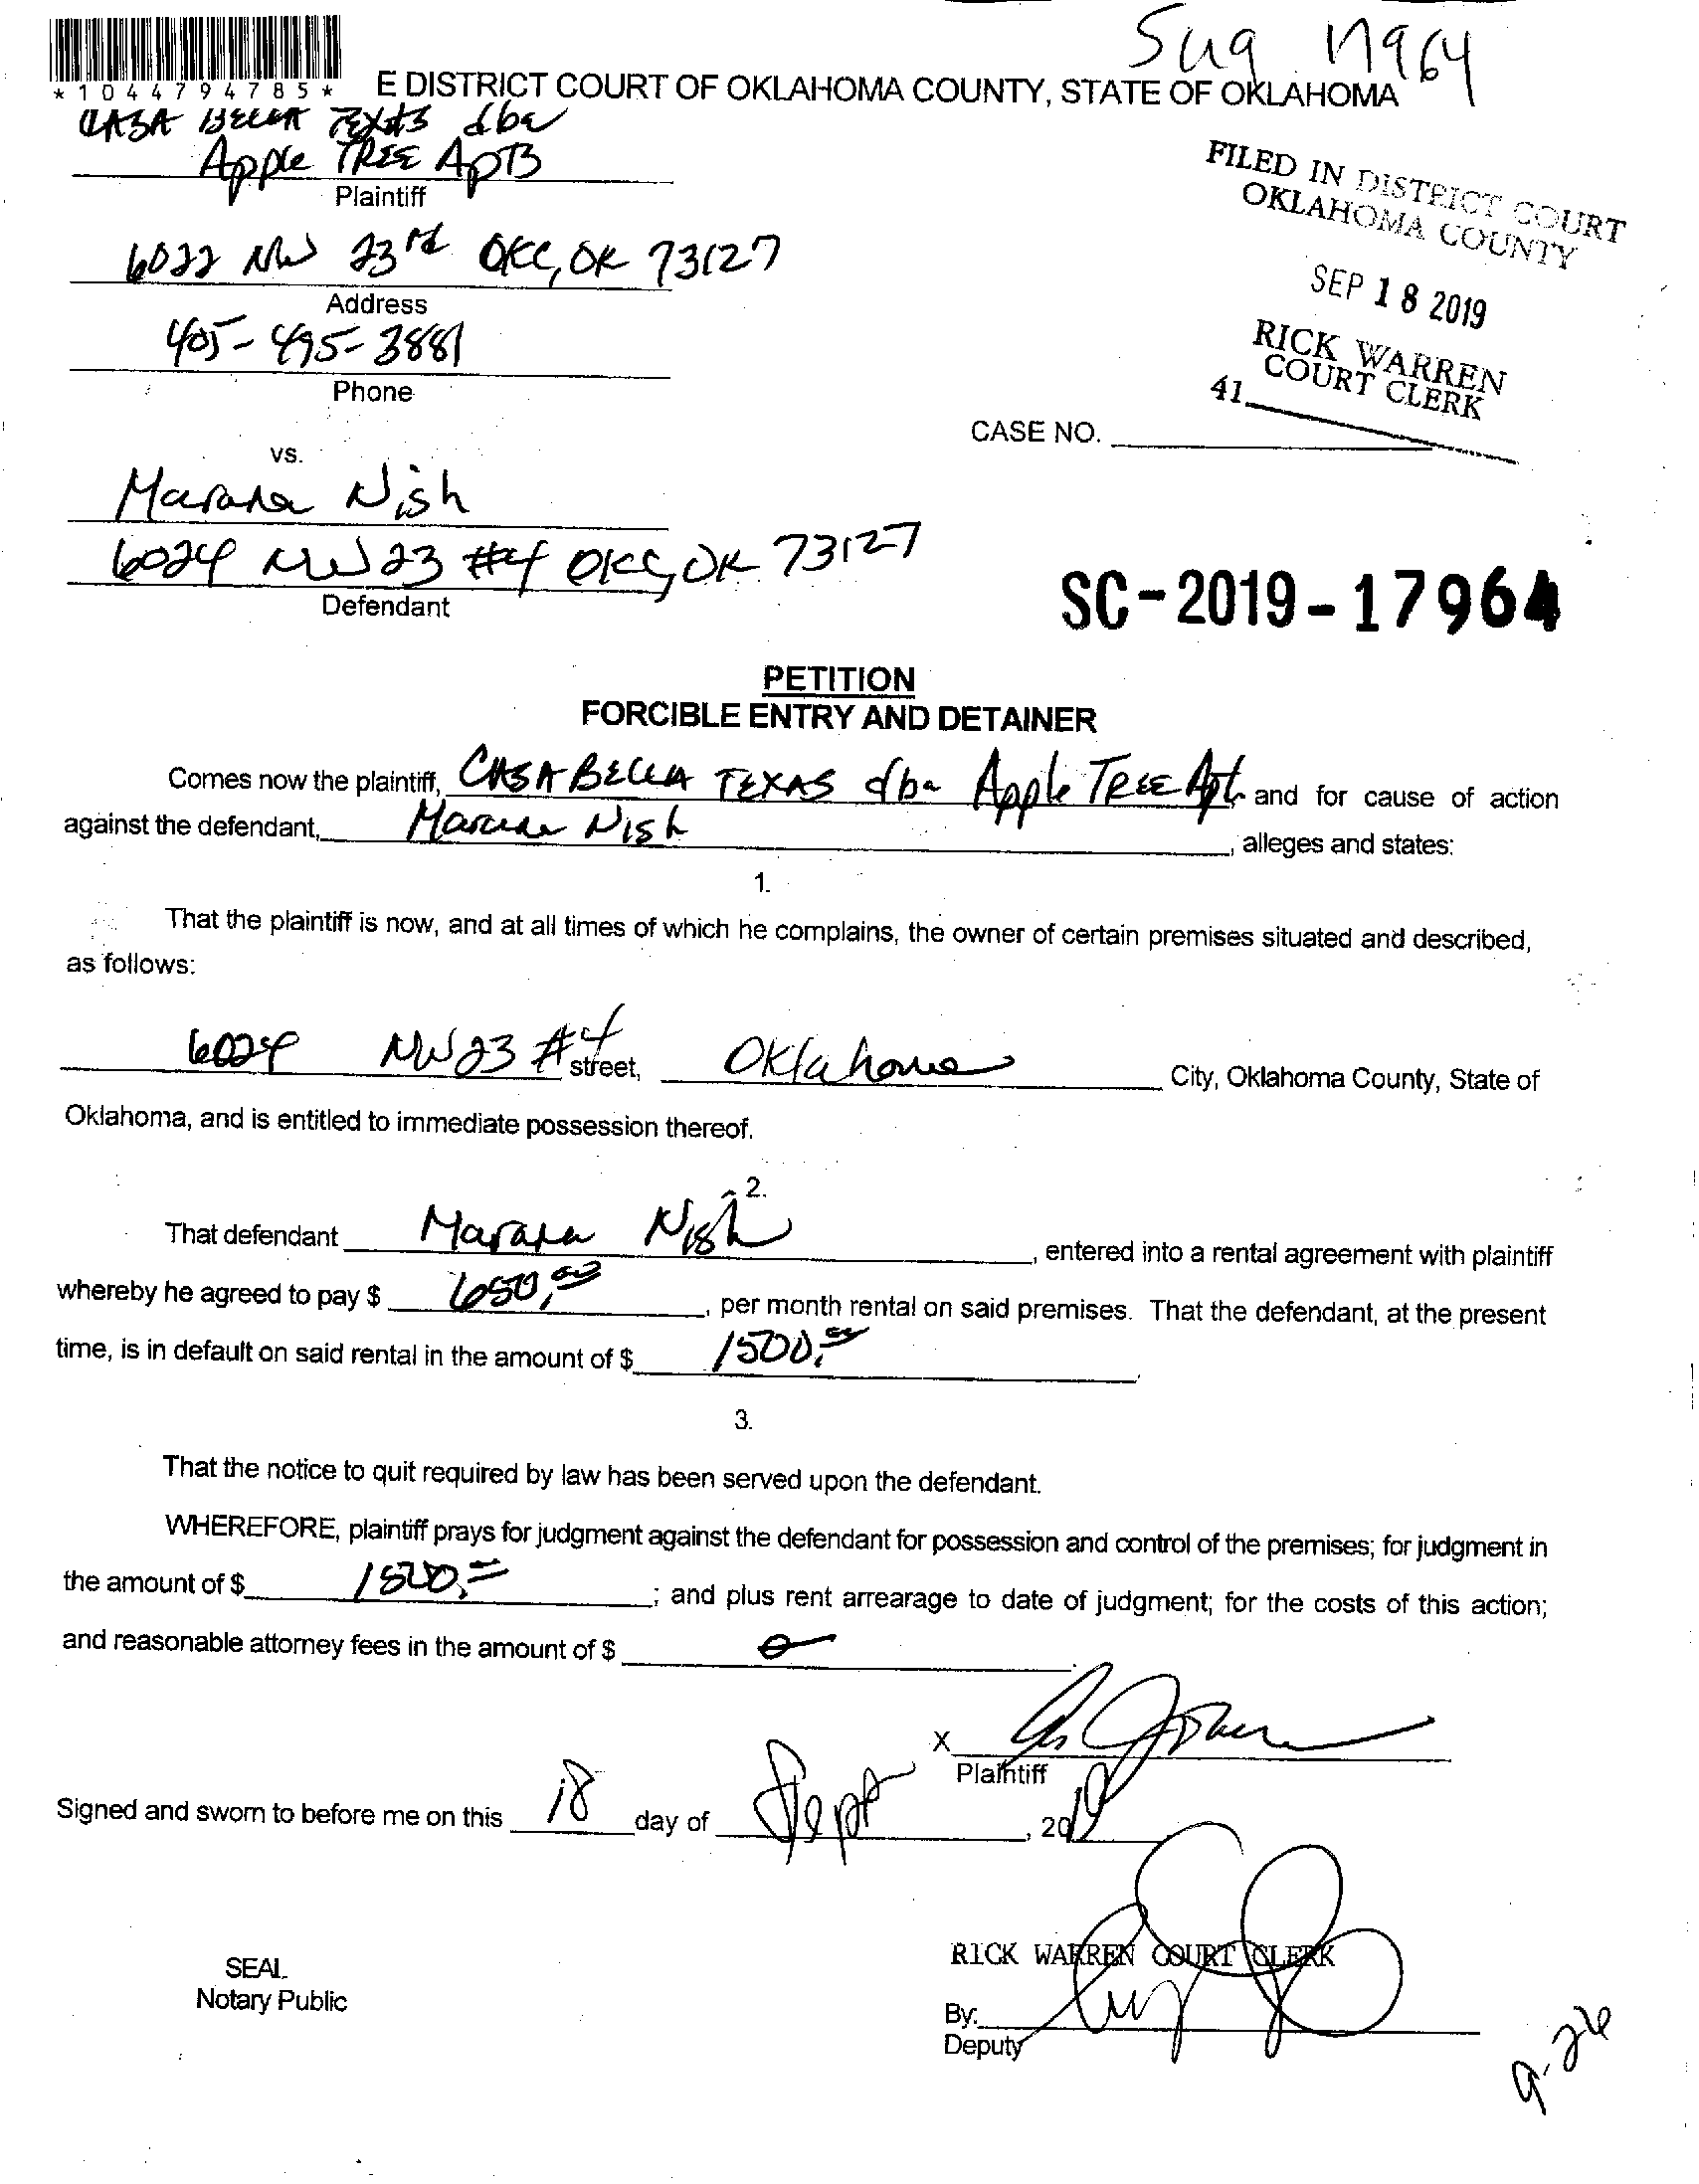 *1044794785*
E DISTRICT COURT OF OKLAHOMA COUNTY, STATE OF OKLAHOMA
17964
CASA BELLA TEXAS dba
Apple TREE APTS
Plaintiff
6022 NW 23rd OKC, OK 73127
Address
405-495-3881
Phone
FILED IN DISTRICT COURT
OKLAHOMA COUNTY
SEP 18 2019
RICK WARREN
COURT CLERK
41
CASE NO.
vs.
Nish
6024 NW 23 #4 OKC, OK 73127
Defendant
SC-2019-17964
PETITION
FORCIBLE ENTRY AND DETAINER
Comes now the plaintiff, CASA BELLA TEXAS dba Apple TREE Apt. and for cause of action
against the defendant, Nish, alleges and states:
1.
That the plaintiff is now, and at all times of which he complains, the owner of certain premises situated and described,
as follows:
6024 NW 23 #4 street, Oklahoma City, Oklahoma County, State of
Oklahoma, and is entitled to immediate possession thereof.
2.
That defendant Nish, entered into a rental agreement with plaintiff
whereby he agreed to pay $ 650.00, per month rental on said premises. That the defendant, at the present
time, is in default on said rental in the amount of $ 1500.00.
3.
That the notice to quit required by law has been served upon the defendant.
WHEREFORE, plaintiff prays for judgment against the defendant for possession and control of the premises; for judgment in
the amount of $ 1500.=; and plus rent arrearage to date of judgment; for the costs of this action;
and reasonable attorney fees in the amount of $ 0.
X
Plaintiff
Signed and sworn to before me on this 18 day of Sept, 2019
SEAL
Notary Public
RICK WARREN COURT CLERK
By:
Deputy
9-26